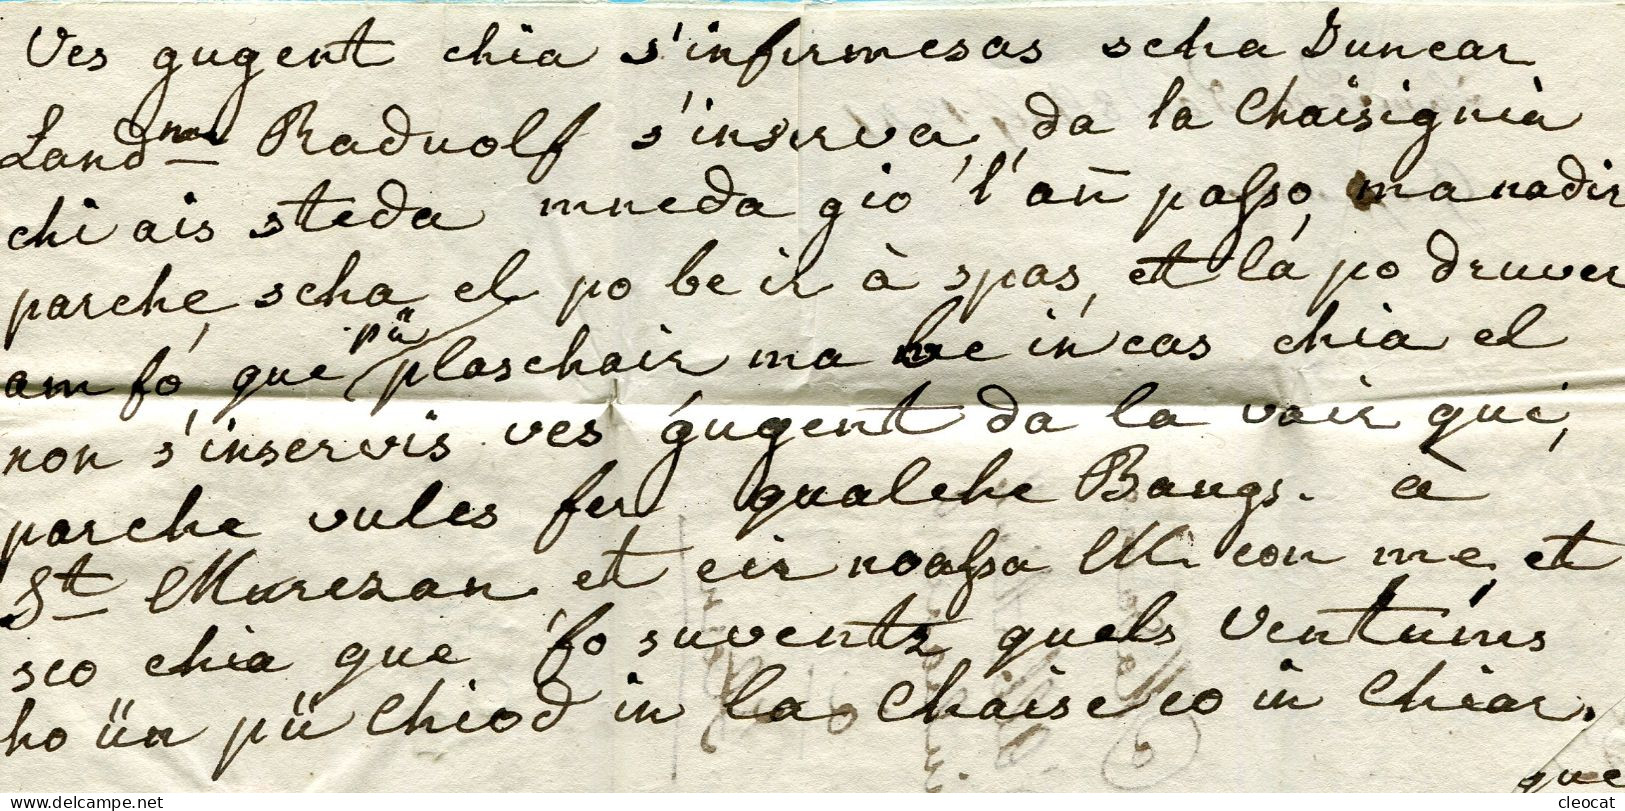 Ves gugent chia s'infurmesas scha Juncar
Land.ma Radnolf s'inserva, da la Chaisignia
chi ais steda mneda gio l'añ passo, ma nadir
parche, scha el po be ir à spas, et la po druver
am fo, que pü plaschair ma be in cas chia el
non s'inservis ves gugent da la vair qui,
parche vules fer qualche Baugs. à
St. Murezan et eir noassa M. con me, et
seo chia que fo suventz quels Ventüms
ho ün pü Chiod in la Chaise co in Chiar.
que
cleocat